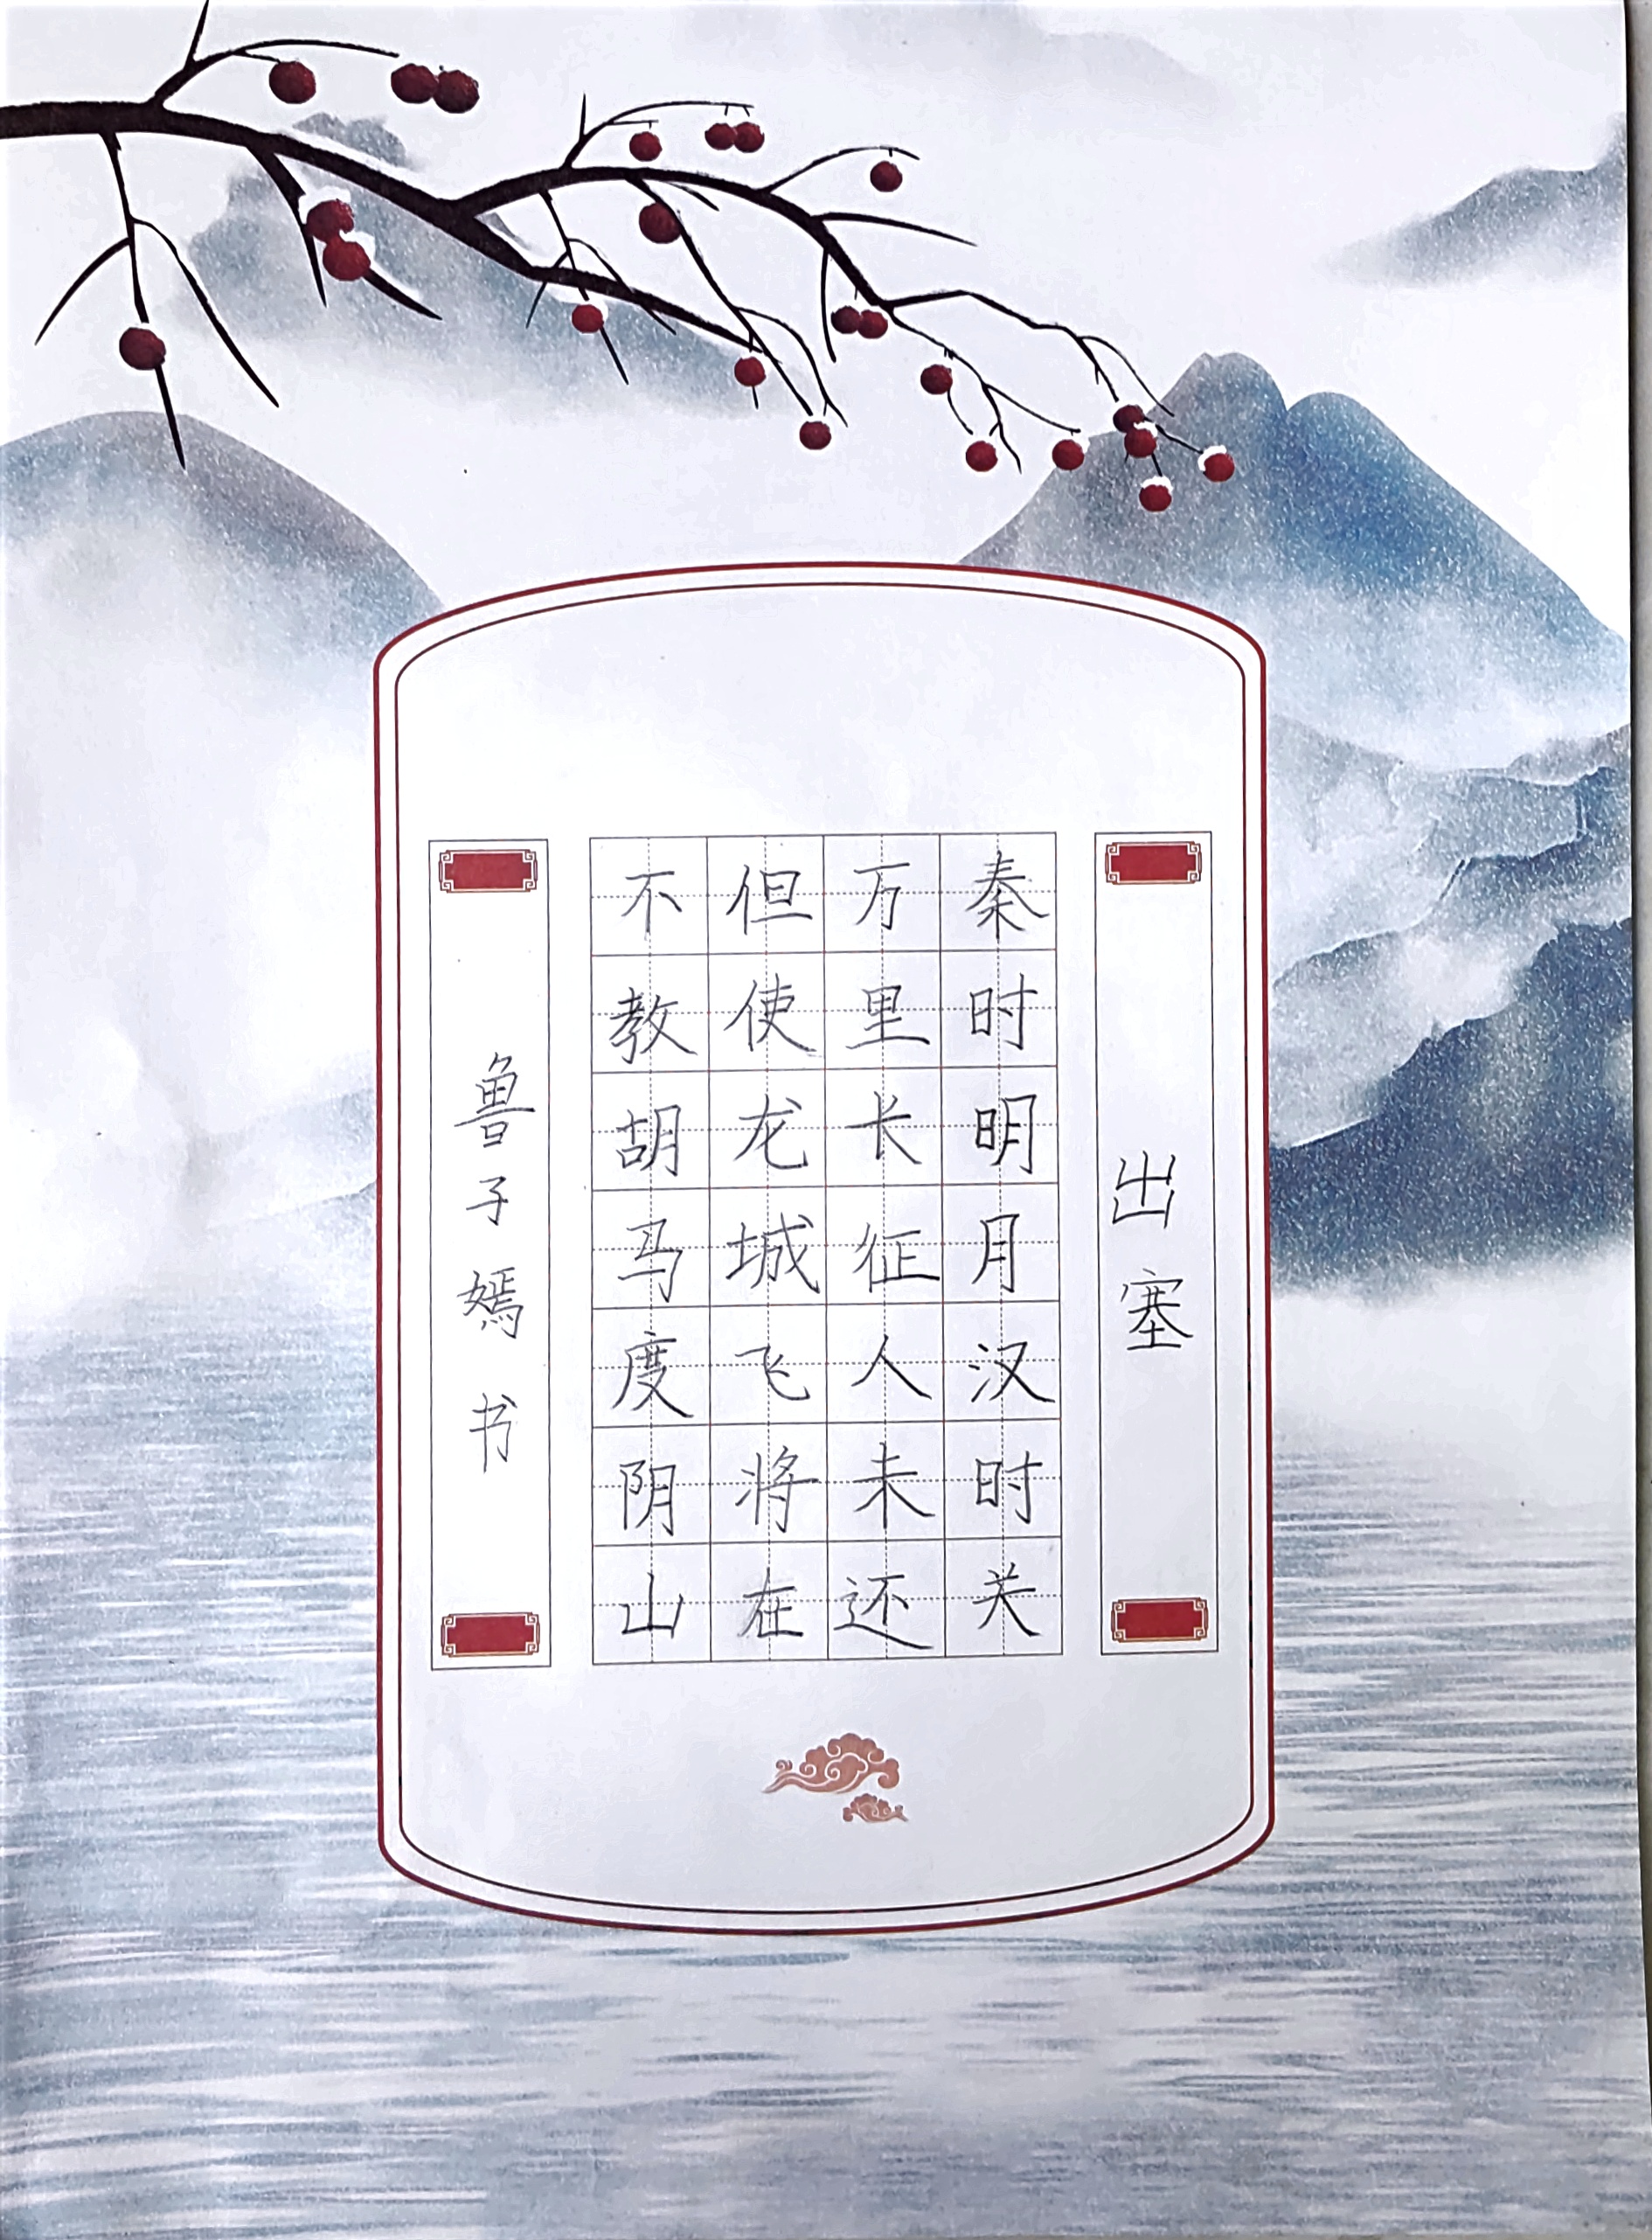 出塞
秦时明月汉时关
万里长征人未还
但使龙城飞将在
不教胡马度阴山
鲁子嫣书